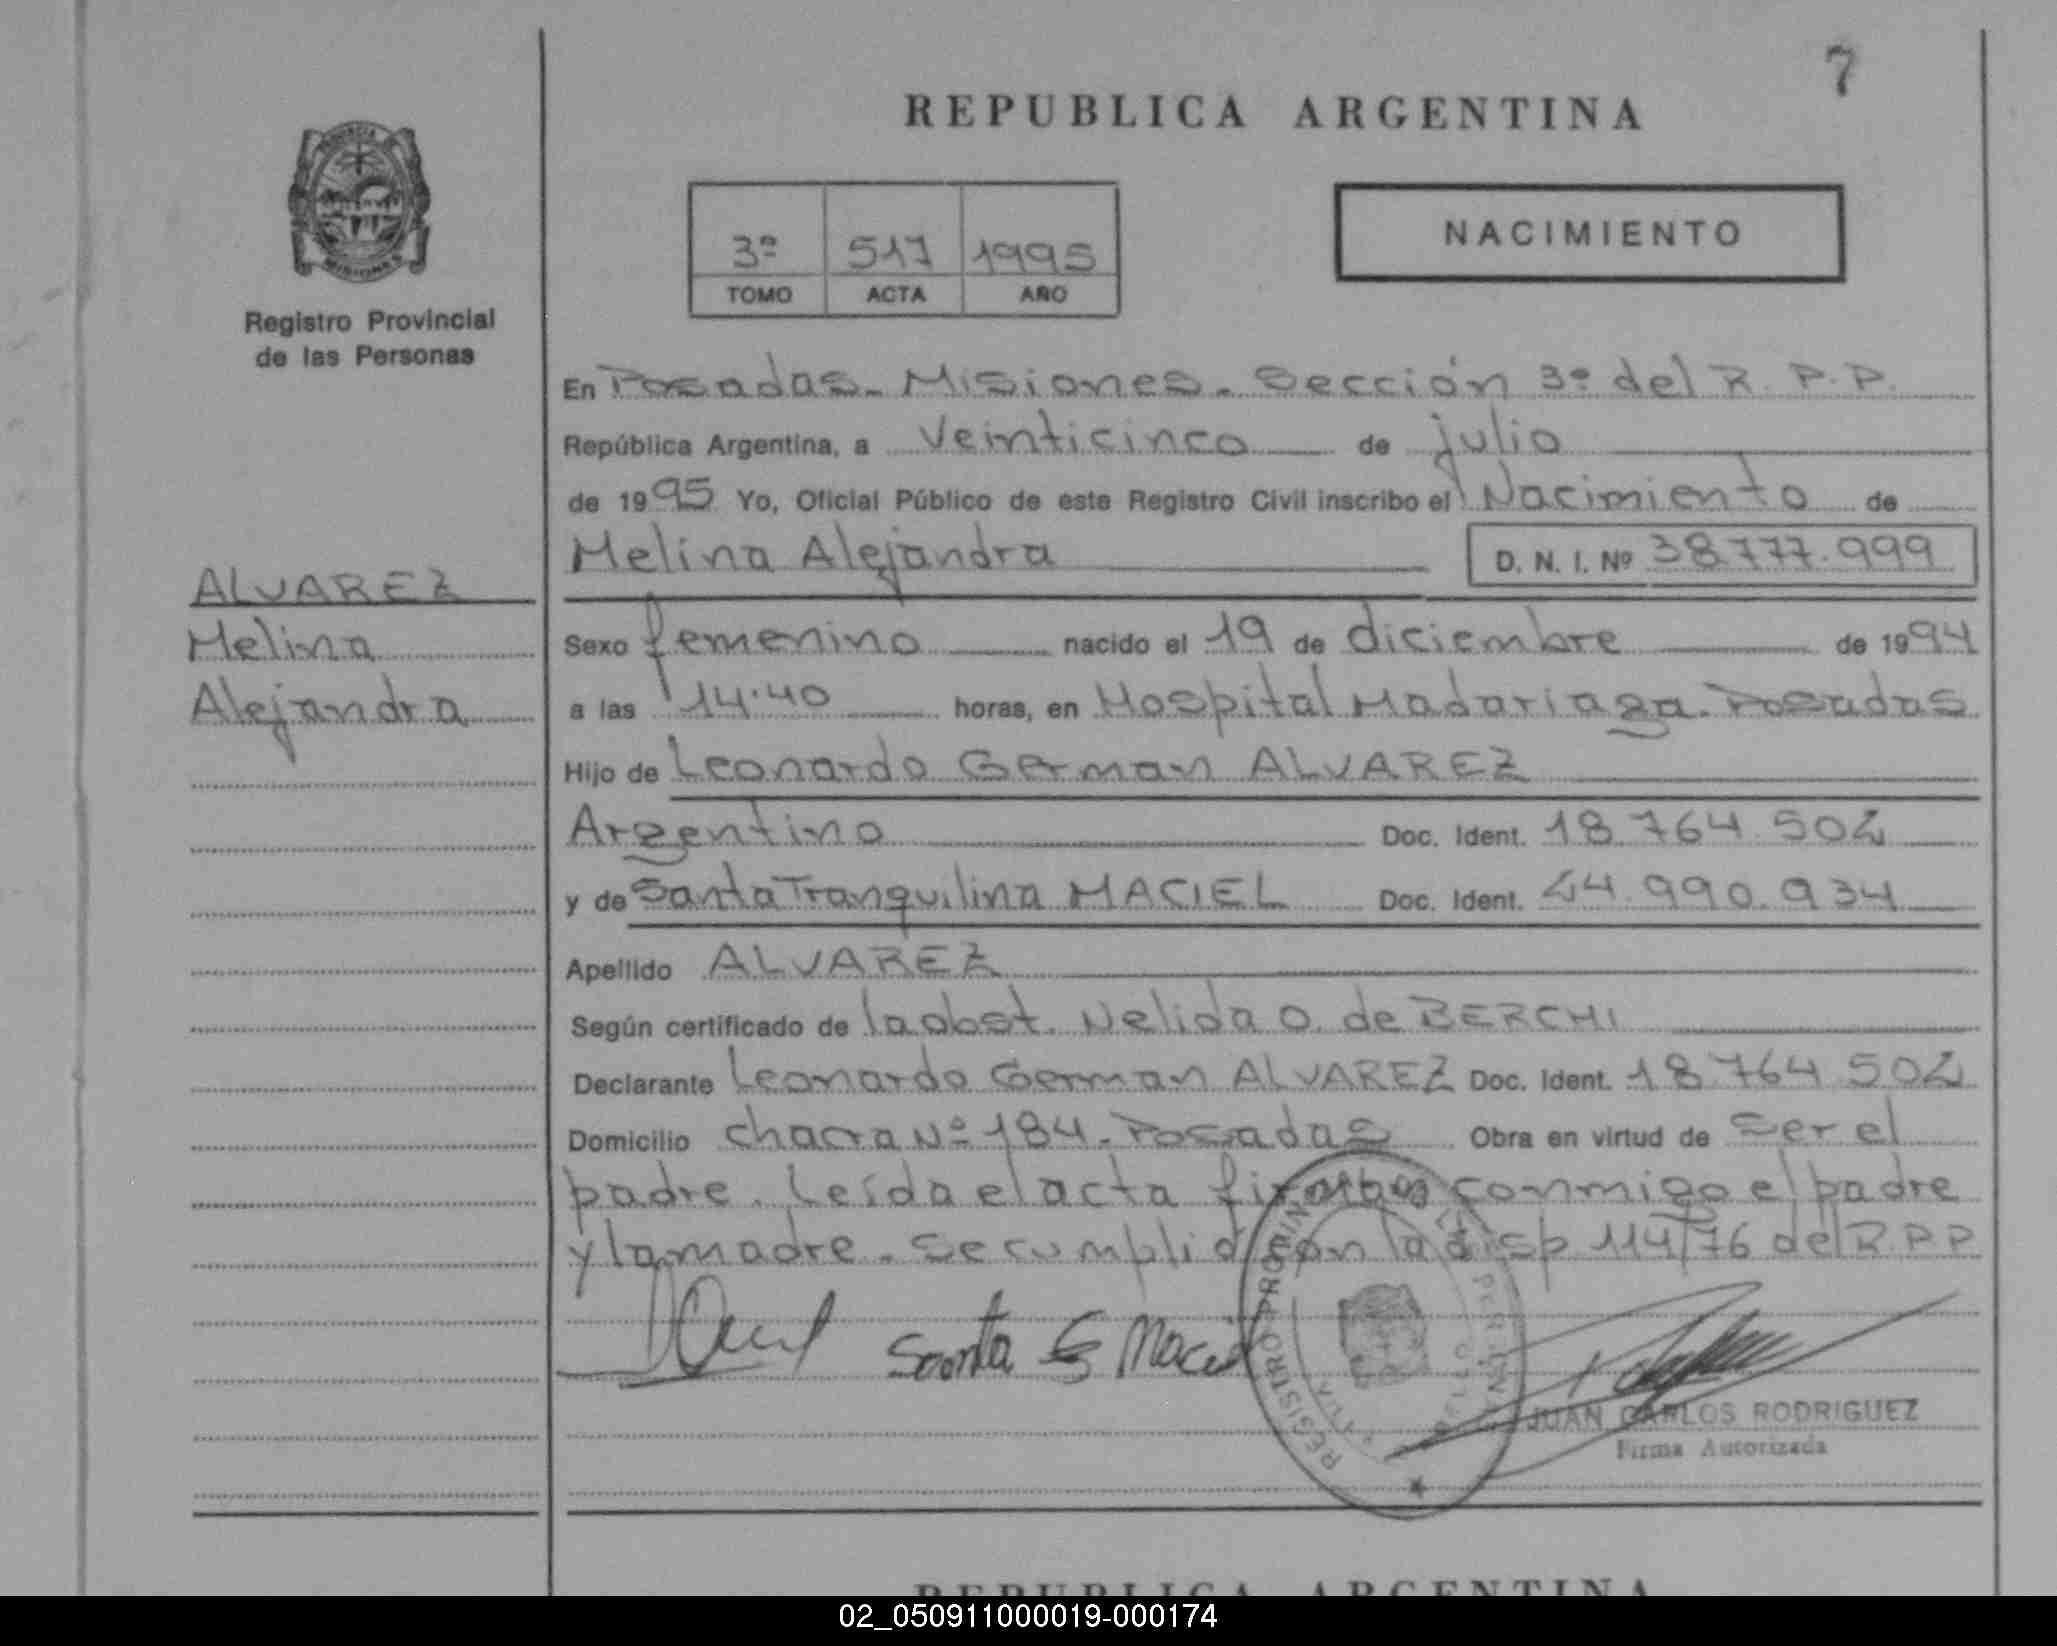 7
REPUBLICA ARGENTINA
3º 517 1995
TOMO ACTA AÑO
NACIMIENTO
Registro Provincial
de las Personas
En Posadas - Misiones - Sección 3º del R. P. P.
República Argentina, a Veinticinco de julio
de 1995 Yo, Oficial Público de este Registro Civil inscribo el Nacimiento de
Melina Alejandra D. N. I. Nº 38.777.999
ALVAREZ
Melina
Alejandra
Sexo femenino nacido el 19 de diciembre de 1994
a las 14.40 horas, en Hospital Madariaga. Posadas
Hijo de Leonardo German ALVAREZ
Argentino Doc. Ident. 18.764.502
y de Santa Tranquilina MACIEL Doc. Ident. 24.990.934
Apellido ALVAREZ
Según certificado de la obst. Nelida O. de BERCHI
Declarante Leonardo German ALVAREZ Doc. Ident. 18.764.502
Domicilio chacra Nº 184 - Posadas Obra en virtud de ser el
padre. Leída el acta firman conmigo el padre
y la madre - Se cumplió con la disp 114/76 del R.P.P
Santa Maciel
REGISTRO PROVINCIAL
JUAN CARLOS RODRIGUEZ
Firma Autorizada
REPUBLICA ARGENTINA
02_050911000019-000174